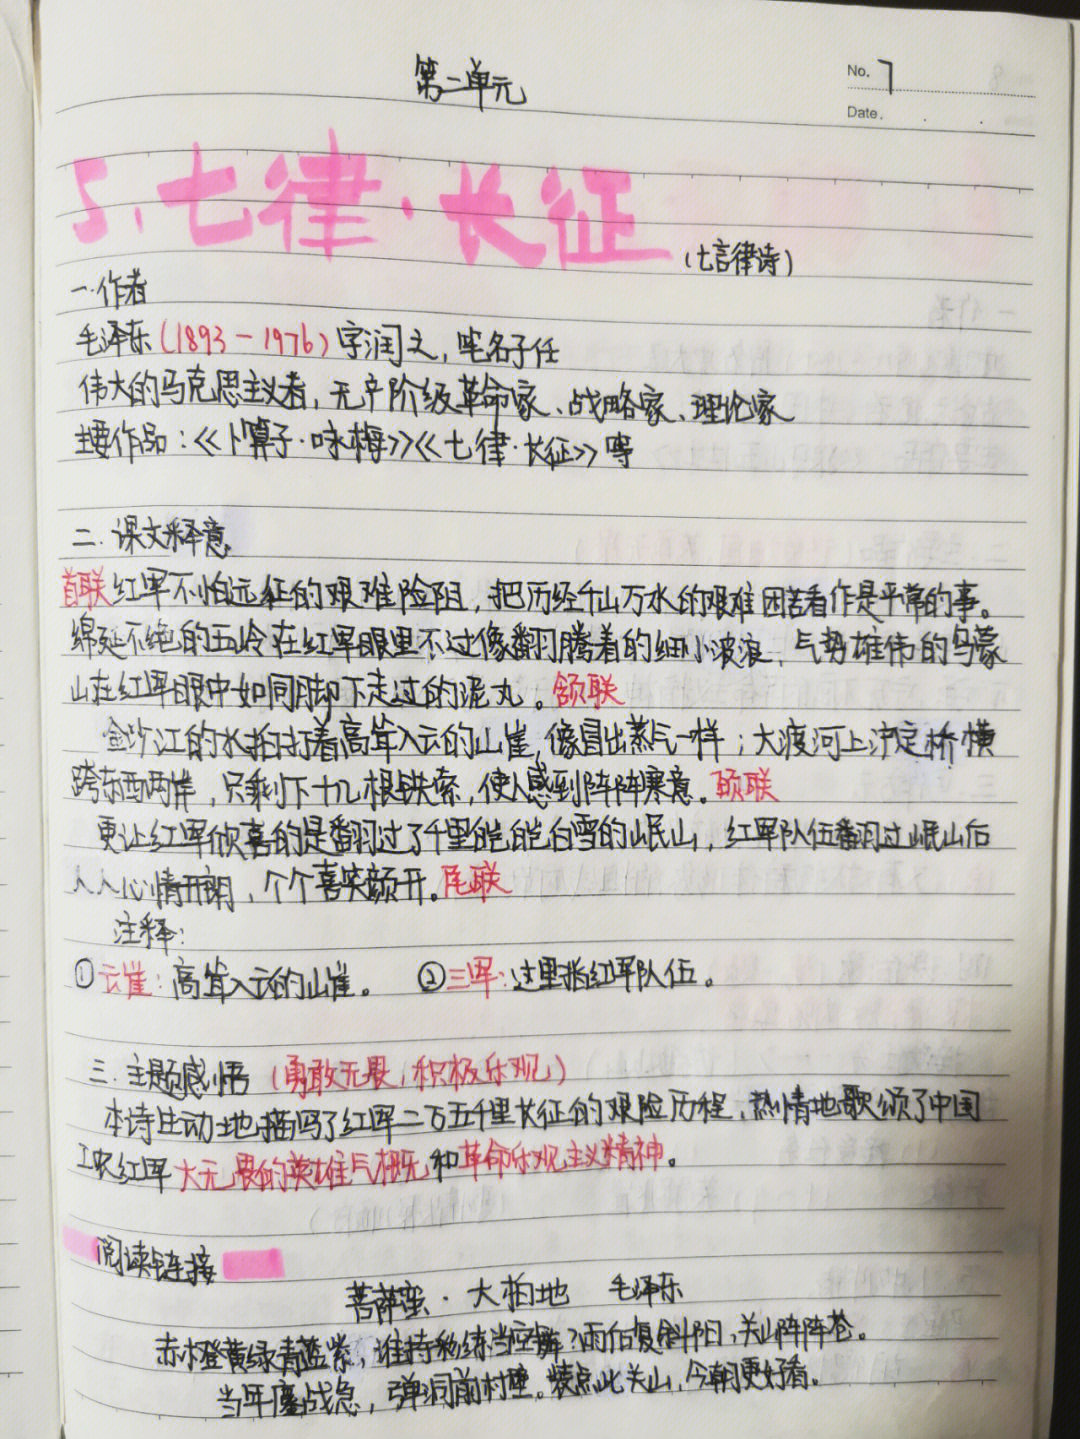 第二单元
No. 7
Date.
5.七律·长征
(七言律诗)
一.作者
毛泽东(1893-1976)字润之,笔名子任
伟大的马克思主义者,无产阶级革命家、战略家、理论家
主要作品:<<卜算子·咏梅>><<七律·长征>>等
二.课文释意
首联 红军不怕远征的艰难险阻,把历经千山万水的艰难困苦看作是平常的事。
绵延不绝的五岭在红军眼里不过像翻腾着的细小波浪,气势雄伟的乌蒙
山在红军眼中如同脚下走过的泥丸。颔联
金沙江的水拍打着高耸入云的山崖,像冒出蒸气一样;大渡河上泸定桥横
跨东西两岸,只剩下十几根铁索,使人感到阵阵寒意。颈联
更让红军欣喜的是翻过了千里皑皑白雪的岷山,红军队伍翻过岷山后
人人心情开朗,个个喜笑颜开。尾联
注释:
①云崖:高耸入云的山崖。 ②三军:这里指红军队伍。
三.主题感悟(勇敢无畏,积极乐观)
本诗生动地描写了红军二万五千里长征的艰险历程,热情地歌颂了中国
工农红军大无畏的英雄气概和革命乐观主义精神。
阅读链接
菩萨蛮·大柏地 毛泽东
赤橙黄绿青蓝紫,谁持彩练当空舞?雨后复斜阳,关山阵阵苍。
当年鏖战急,弹洞前村壁。装点此关山,今朝更好看。